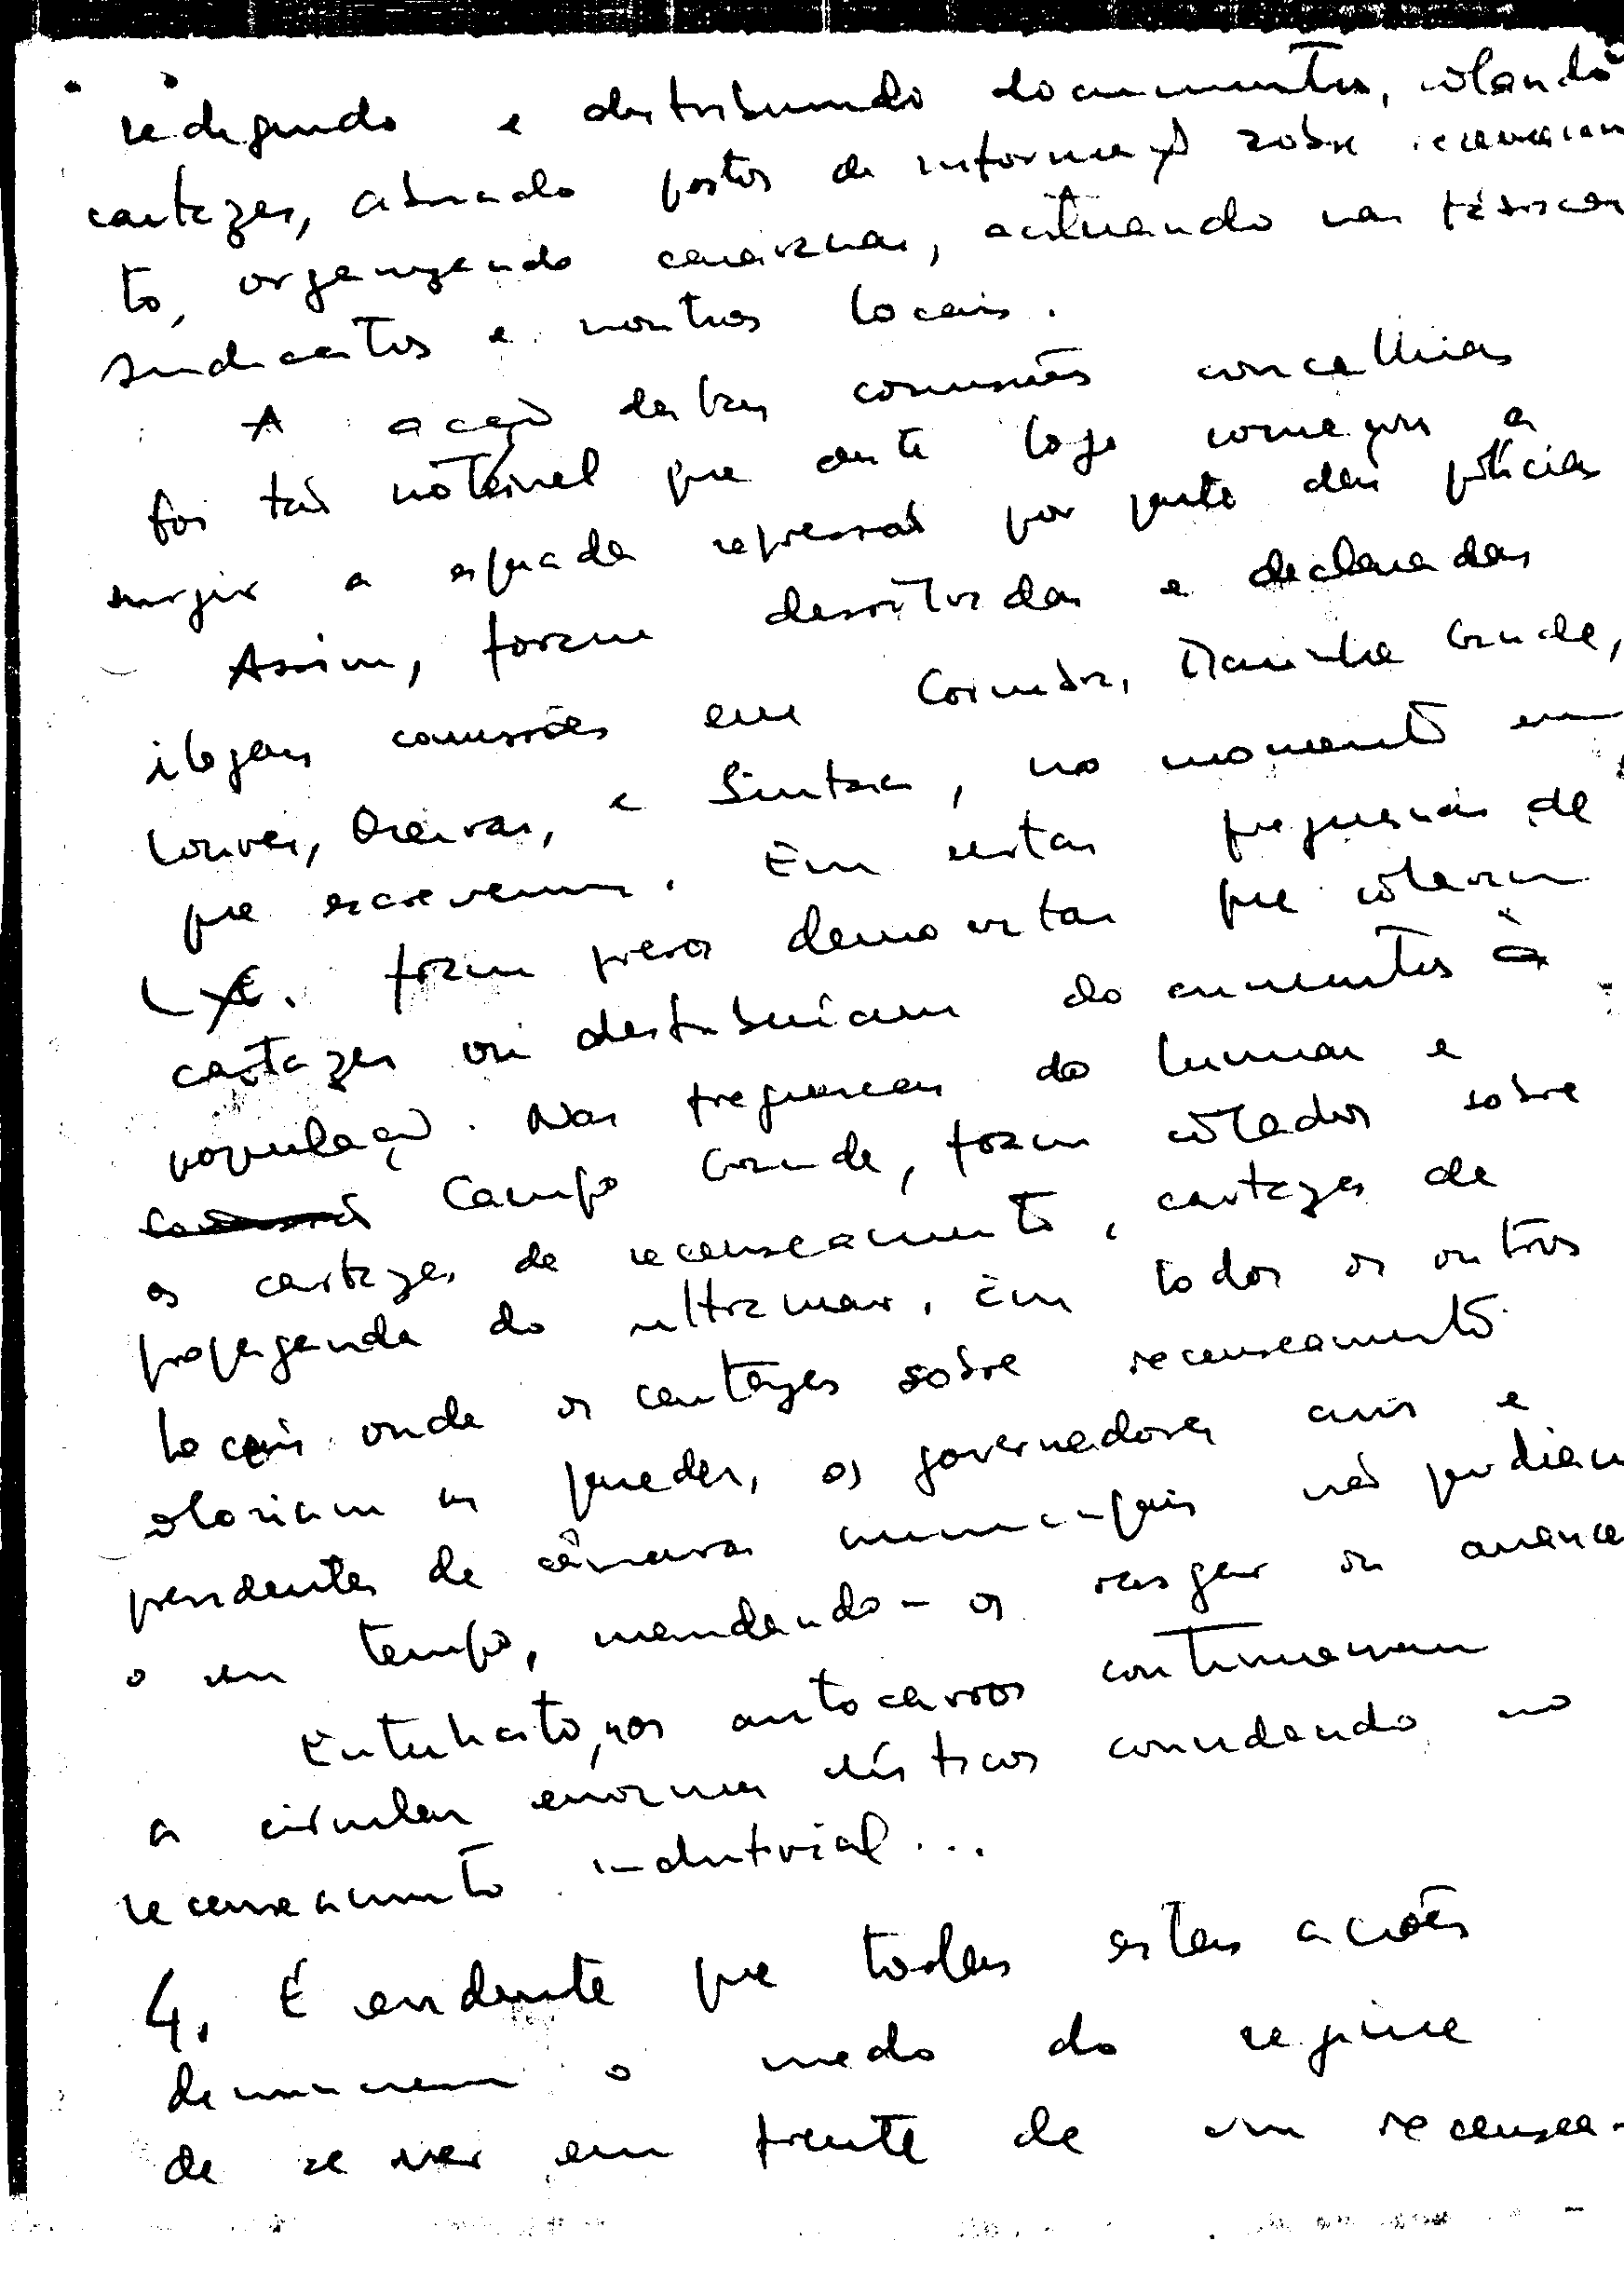 redigindo e distribuindo documentos, colando
cartazes, abrindo postos de informação sobre recenseamen
to, organizando caravanas, actuando nas fábricas
sindicatos e noutros locais.
A acção destas comissões concelhias
foi tão notável que deste logo começou a
surgir a esperada repressão por parte das polícias
Assim, foram dissolvidas e declaradas
ilegais comissões em Coimbra, Marinha Grande,
Loures, Oeiras, e Sintra, no momento em
que escrevemos. Em certas freguesias de
Lx. foram presos democratas que colavam
cartazes ou distribuíam documentos à
população. Nas freguesias do Lumiar e
Campo Grande, foram colados sobre
os cartazes de recenseamento, cartazes de
propaganda do ultramar. Em todos os outros
locais onde os cartazes sobre recenseamento
coloriam as paredes, os governadores civis e
presidentes de câmaras municipais não perdiam
o seu tempo, mandando-os rasgar ou arrancar
Entretanto, nos autocarros continuavam
a circular enormes dísticos convidando ao
recenseamento industrial...
4. É evidente que todas estas acções
denunciam o medo do regime
de se ver em frente de um recensea-